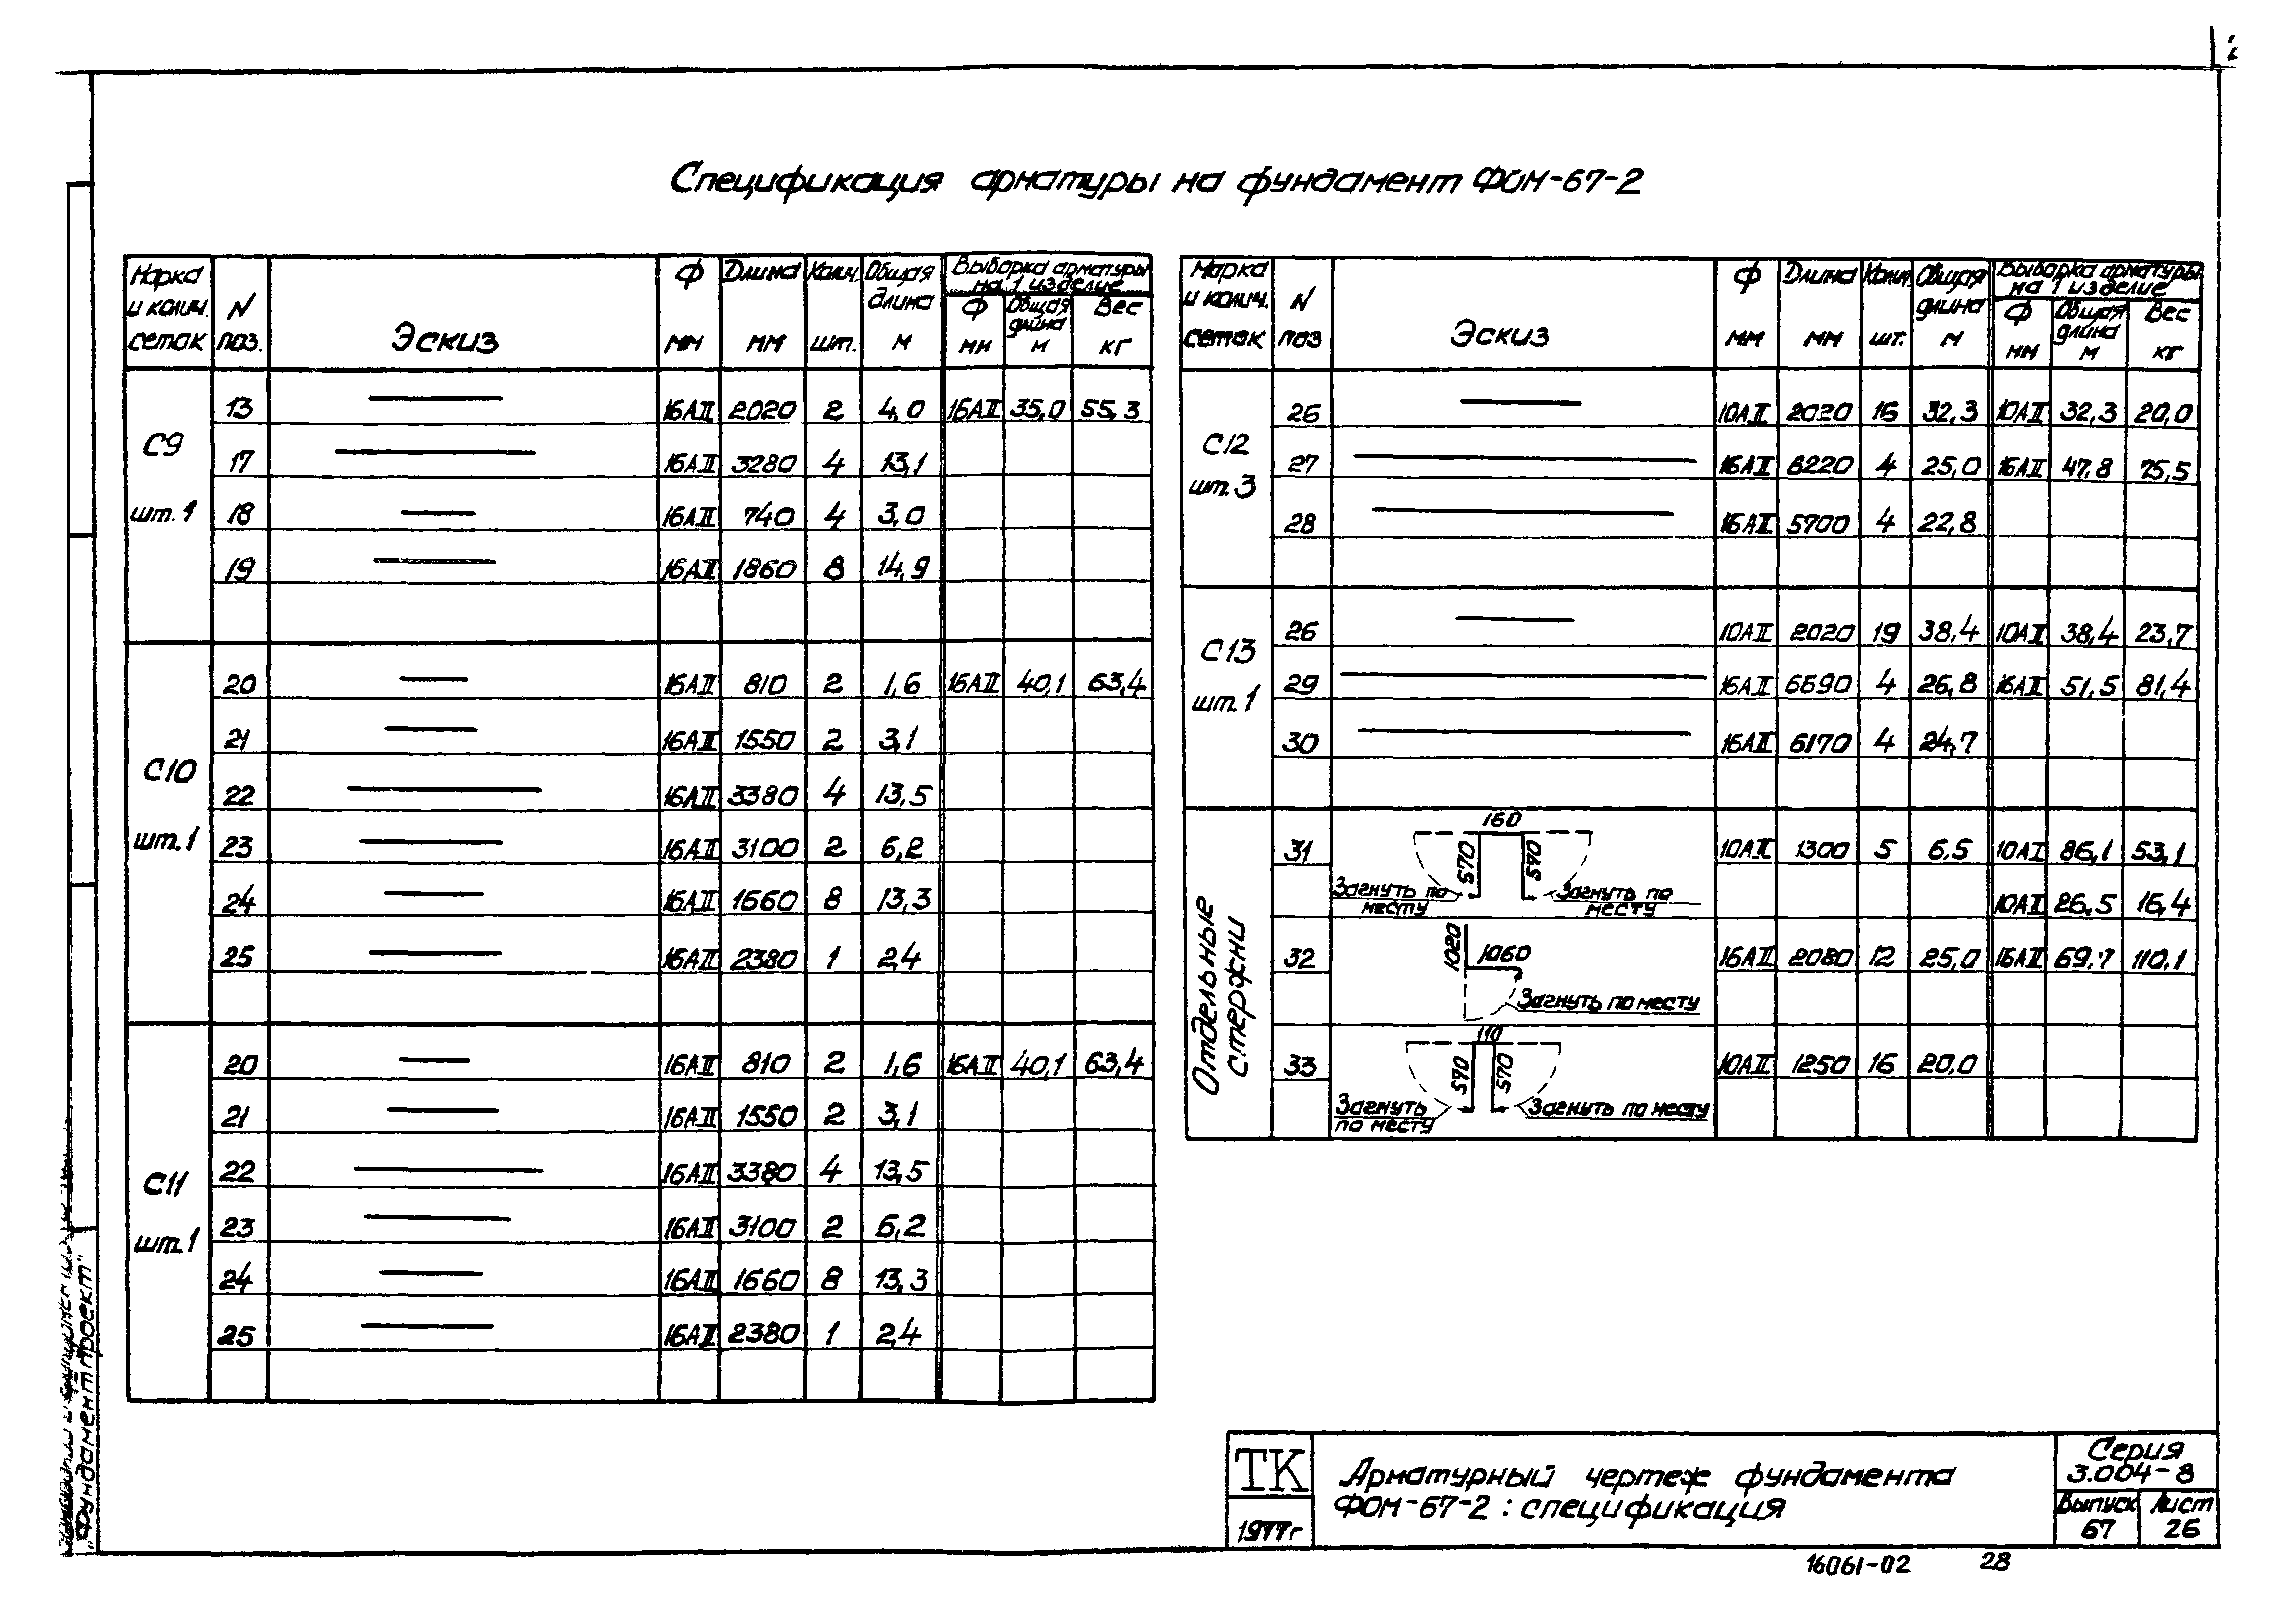 Спецификация арматуры на фундамент ФОМ-67-2
Марка и колич. сеток | N поз. | Эскиз | Ф мм | Длина мм | Колич. шт. | Общая длина м | Выборка арматуры на 1 изделие: Ф мм | Общая длина м | Вес кг
С9 шт. 1
13 16АII 2020 2 4,0 16АII 35,0 55,3
17 16АII 3280 4 13,1
18 16АII 740 4 3,0
19 16АII 1860 8 14,9
С10 шт. 1
20 16АII 810 2 1,6 16АII 40,1 63,4
21 16АII 1550 2 3,1
22 16АII 3380 4 13,5
23 16АII 3100 2 6,2
24 16АII 1660 8 13,3
25 16АII 2380 1 2,4
С11 шт. 1
20 16АII 810 2 1,6 16АII 40,1 63,4
21 16АII 1550 2 3,1
22 16АII 3380 4 13,5
23 16АII 3100 2 6,2
24 16АII 1660 8 13,3
25 16АII 2380 1 2,4
Марка и колич. сеток | N поз | Эскиз | Ф мм | Длина мм | Колич. шт. | Общая длина м | Выборка арматуры на 1 изделие: Ф мм | Общая длина м | Вес кг
С12 шт. 3
26 10АII 2020 16 32,3 10АII 32,3 20,0
27 16АII 6220 4 25,0 16АII 47,8 75,5
28 16АII 5700 4 22,8
С13 шт. 1
26 10АII 2020 19 38,4 10АII 38,4 23,7
29 16АII 6690 4 26,8 16АII 51,5 81,4
30 16АII 6170 4 24,7
Отдельные стержни
31 160 570 570 Загнуть по месту Загнуть по месту 10АII 1300 5 6.5 10АI 86,1 53,1
10АII 26,5 16,4
32 1020 1060 Загнуть по месту 16АII 2080 12 25,0 16АII 69,7 110,1
33 110 570 570 Загнуть по месту Загнуть по месту 10АII 1250 16 20,0
"Фундаментпроект"
ТК
1977г
Арматурный чертеж фундамента
ФОМ-67-2 : спецификация
Серия
3.004-8
Выпуск 67
Лист 26
16061-02 28